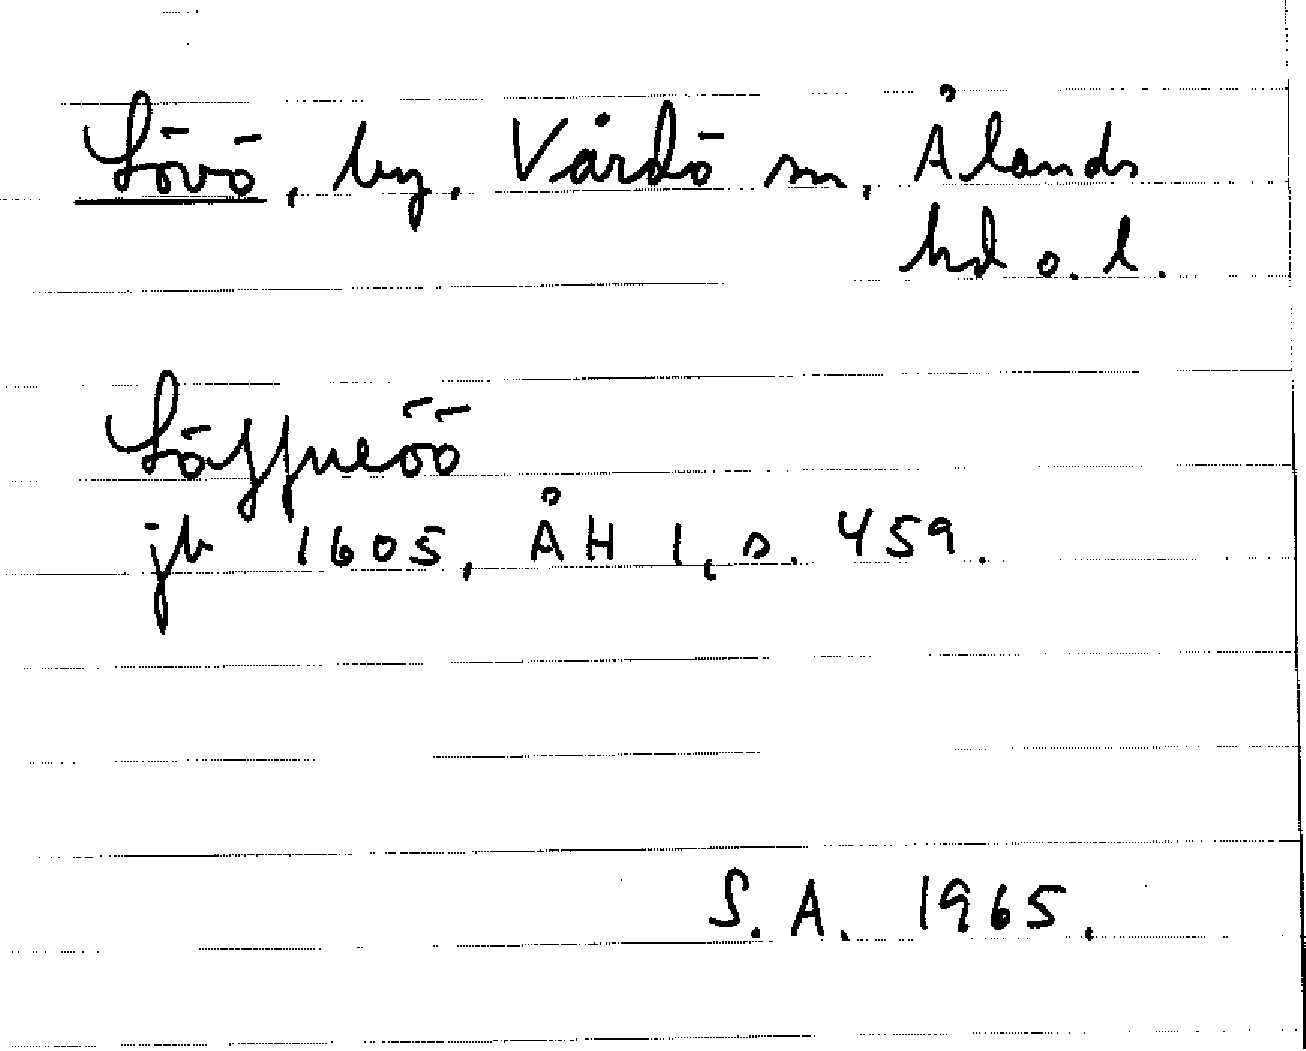 Lövö, by, Vårdö sn, Ålands
hd o. l.
Löffueöö
jb 1605, ÅH 1, s. 459.
S.A. 1965.